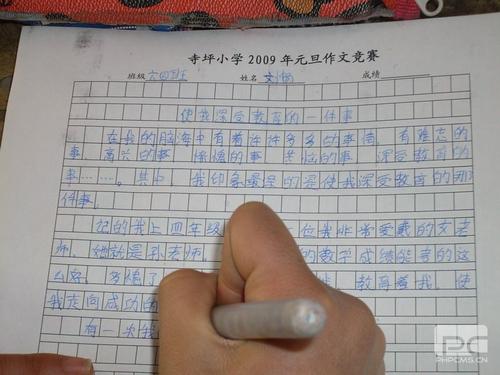 寺坪小学2009年元旦作文竞赛
班级 六四班 姓名 成绩
使我深受教育的一件事
在我的脑海中有着许许多多的事情，有难忘的
事，高兴的事，的事，的事，深受教育的
事……。其中，我印象最深的是使我深受教育的那
件事。
记的我上四年级位我非常爱戴的女老
师，她就是孙老师。的数学成绩能考的这
么好，多教育着我，使
我走向成功的
有一次我
PHPCMS.CN